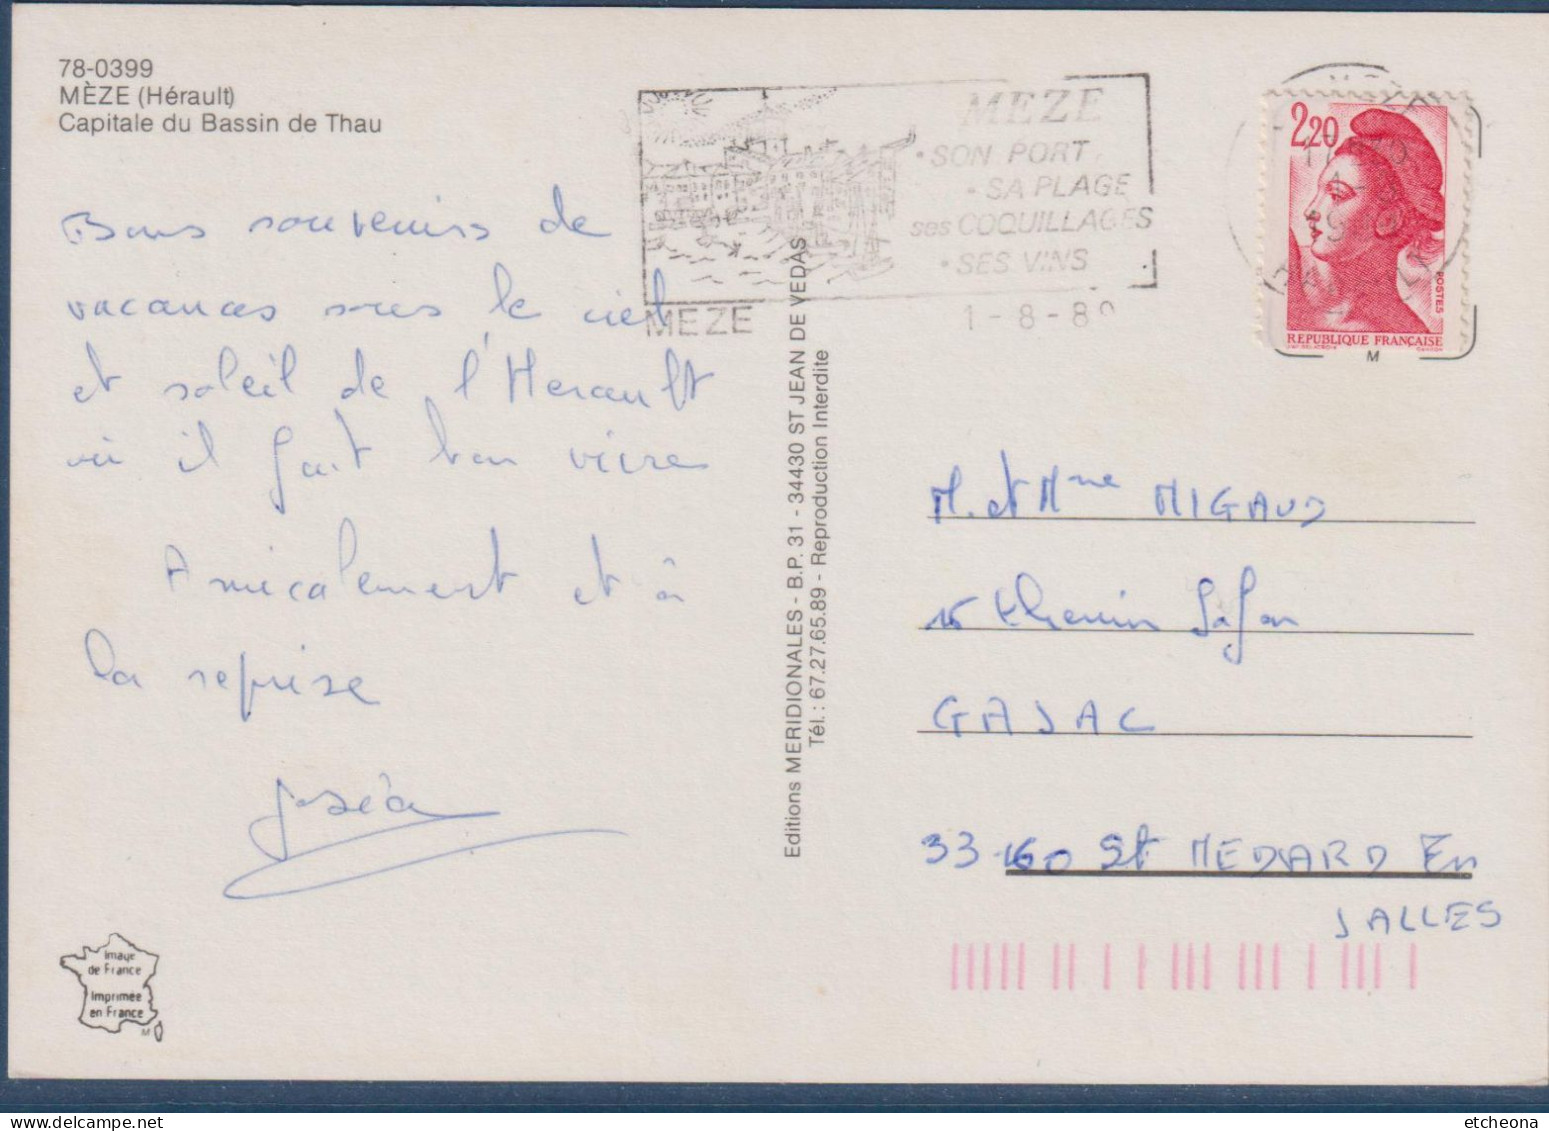 78-0399
MÈZE (Hérault)
Capitale du Bassin de Thau
Bons souvenirs de
vacances sous le ciel
et soleil de l'Herault
où il fait bon vivre
Amicalement et à
la reprise
Image
de France
Imprimée
en France
M
MEZE
• SON PORT
• SA PLAGE
ses COQUILLAGES
• SES VINS
MEZE
1-8-89
Editions MERIDIONALES - B.P. 31 - 34430 ST JEAN DE VEDAS
Tél. : 67.27.65.89 - Reproduction Interdite
2,20
POSTES
REPUBLIQUE FRANÇAISE
M
M. et Mme MIGAUD
16 Chemin
GAJAC
33160 St MEDARD En
JALLES
etcheona